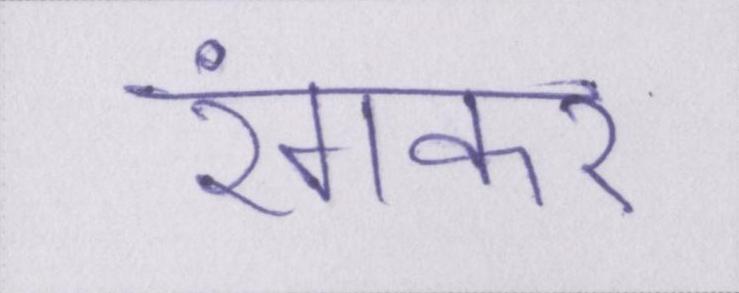 रंगकर